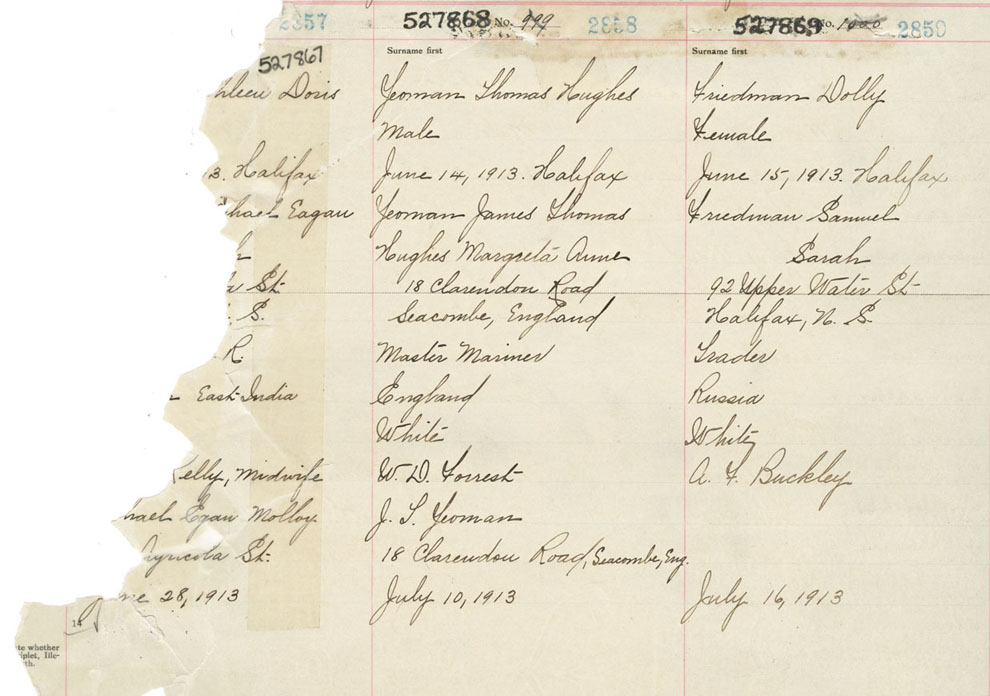 2857
527867
hleen Doris
3. Halifax
hael Eagan
St.
S.
R.
East India
elly, Midwife
hael Egan Molloy
Agricola St.
ne 28, 1913
14
te whether
iplet, Ille-
th.
527868 No. 999 2858
Surname first
Yeoman Thomas Hughes
Male
June 14, 1913. Halifax
Yeoman James Thomas
Hughes Margreta Anne
18 Clarendon Road
Seacombe, England
Master Mariner
England
White
W. D. Forrest
J. T. Yeoman
18 Clarendon Road, Seacombe, Eng.
July 10, 1913
527869 No. 1000 2859
Surname first
Friedman Dolly
Female
June 15, 1913. Halifax
Friedman Samuel
Sarah
92 Upper Water St
Halifax, N. S.
Trader
Russia
White
A. F. Buckley
July 16, 1913